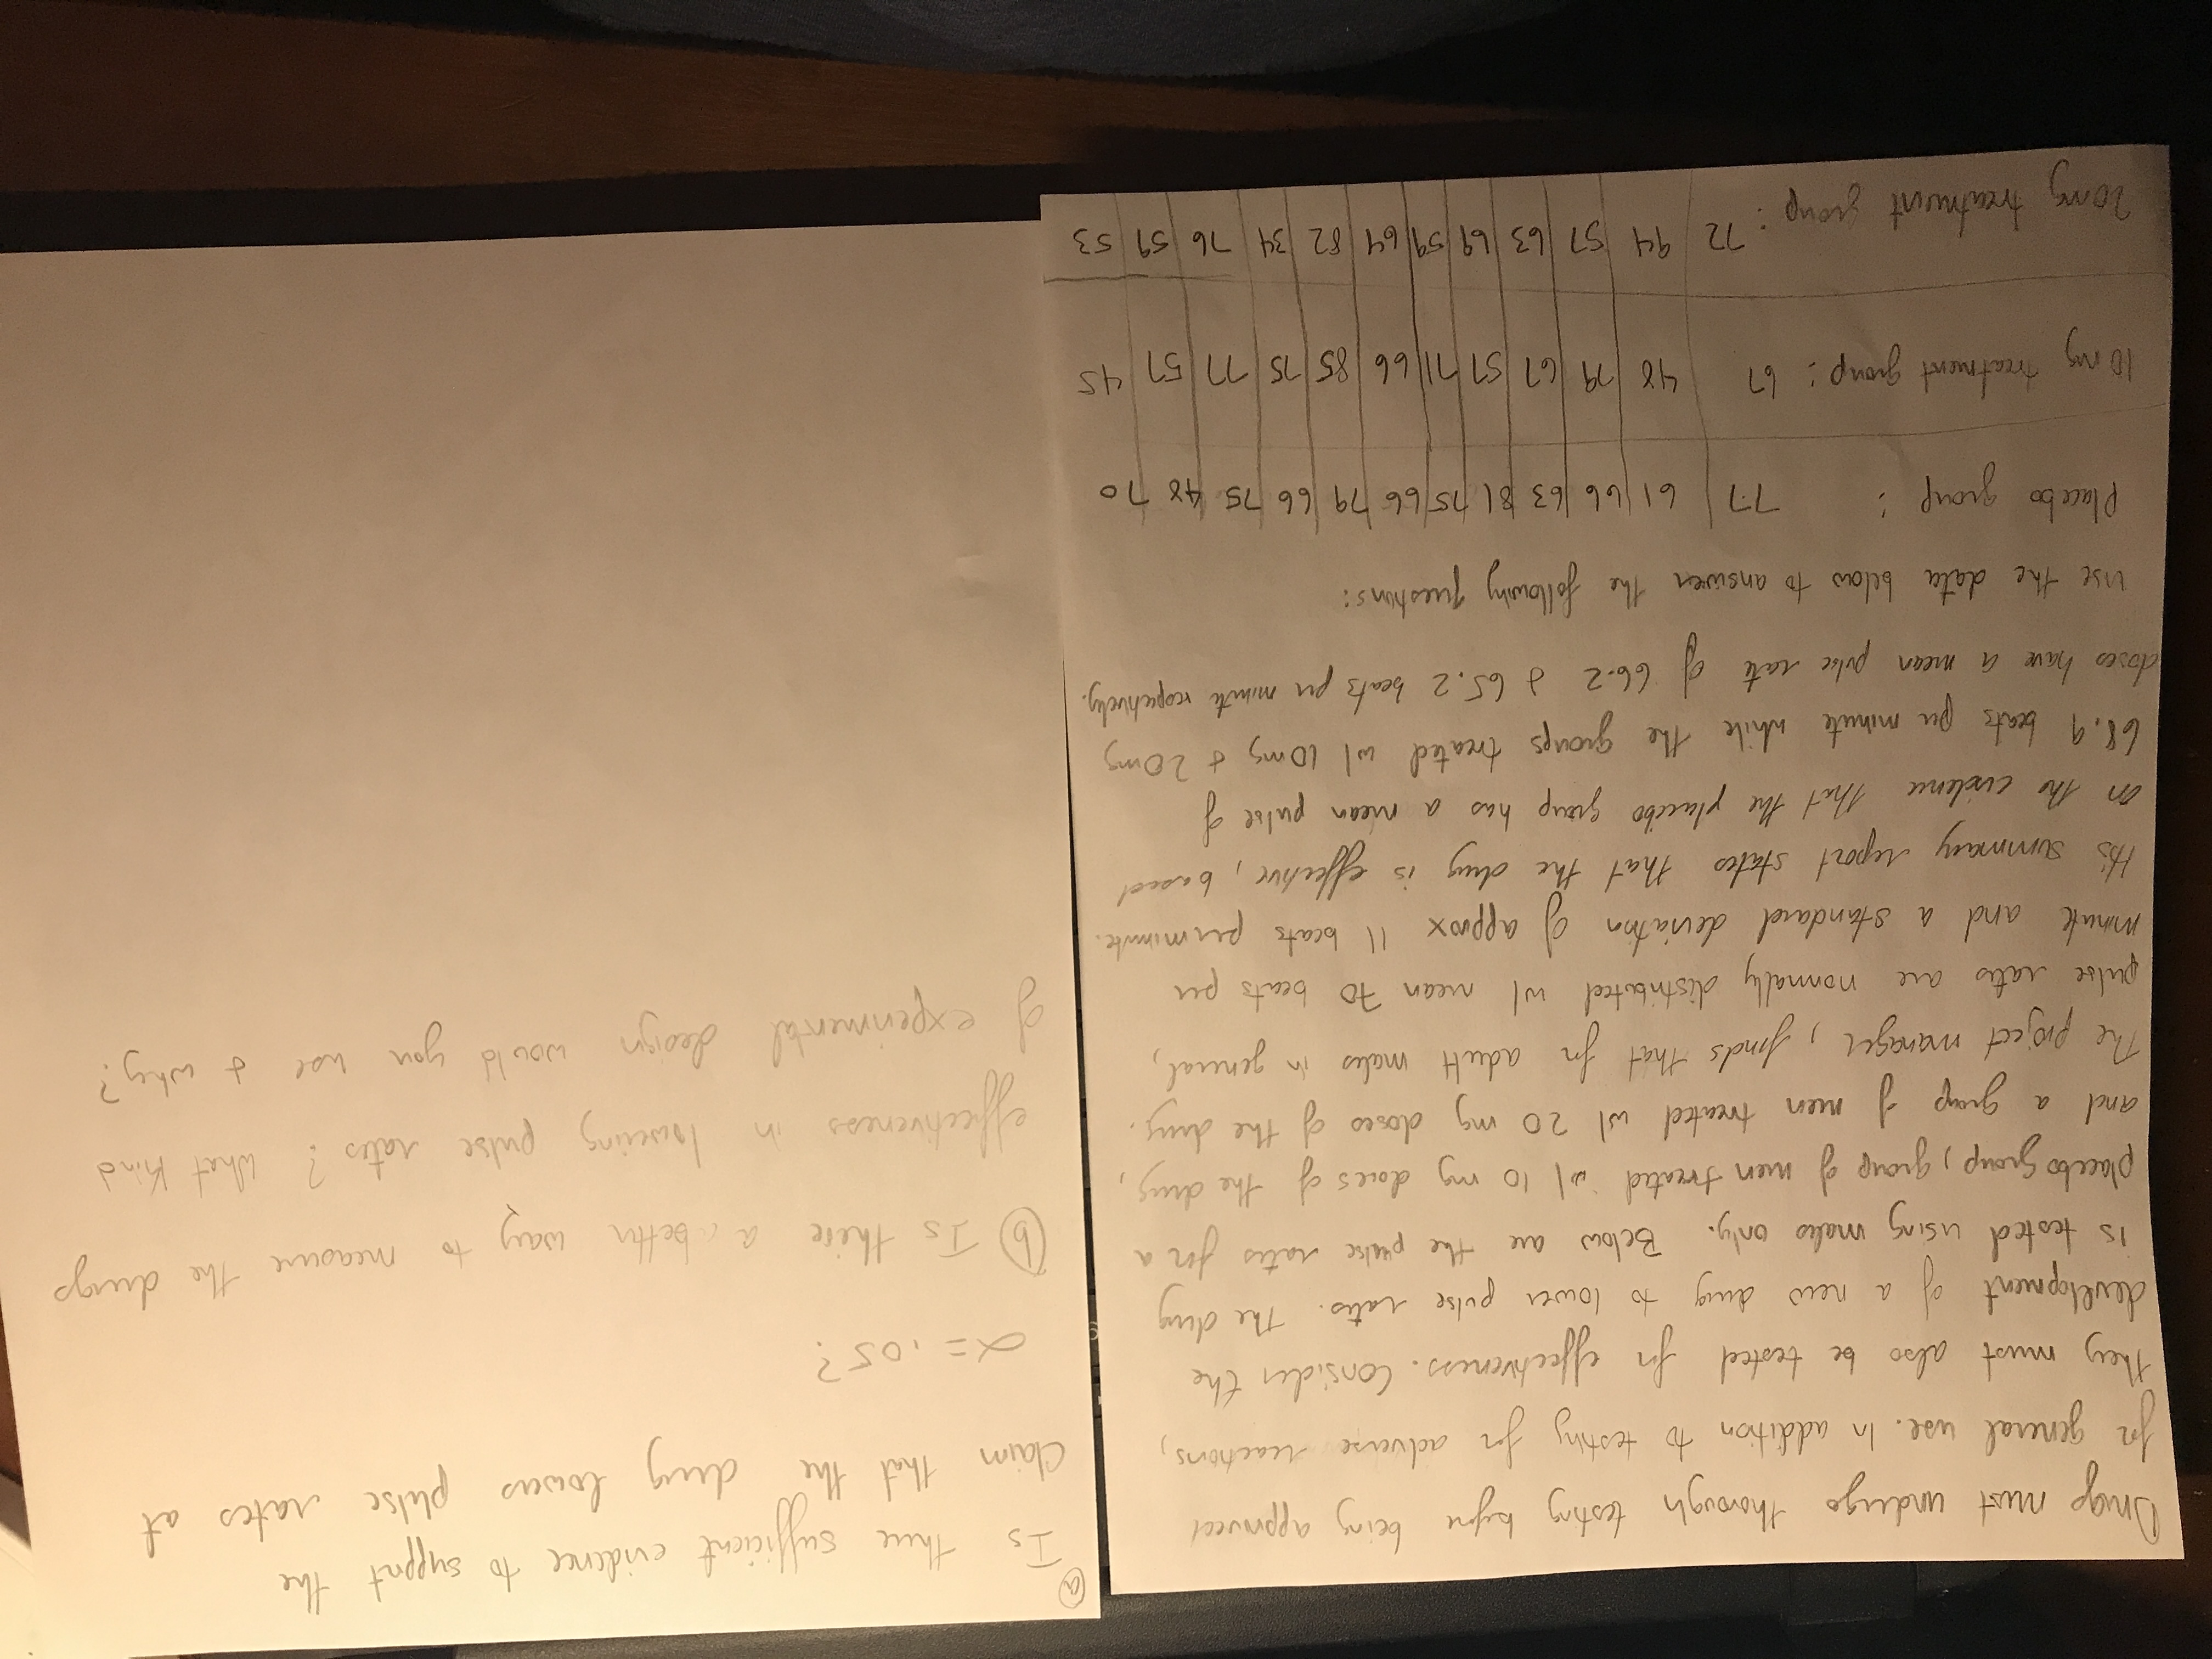 Drugs must undergo thorough testing before being approved
for general use. In addition to testing for adverse reactions,
they must also be tested for effectiveness. Consider the
development of a new drug to lower pulse rates. The drug
is tested using males only. Below are the pulse rates for a
placebo group, group of men treated w/ 10 mg doses of the drug,
and a group of men treated w/ 20 mg doses of the drug.
The project manager, finds that for adult males in general,
pulse rates are normally distributed w/ mean 70 beats per
minute and a standard deviation of approx 11 beats per minute.
His summary report states that the drug is effective, based
on the evidence that the placebo group has a mean pulse of
68.9 beats per minute while the groups treated w/ 10mg & 20mg
doses have a mean pulse rate of 66.2 & 65.2 beats per minute respectively.
Use the data below to answer the following questions:
Placebo group : 77 61 66 63 81 75 66 79 66 75 48 70
10 mg treatment group : 67 48 79 67 57 71 66 85 75 77 57 45
20mg treatment group : 72 94 57 63 69 59 64 82 34 76 59 53
(a) Is there sufficient evidence to support the
claim that the drug lowers pulse rates at
α = .05?
(b) Is there a better way to measure the drugs
effectiveness in lowering pulse rates? What kind
of experimental design would you use & why?